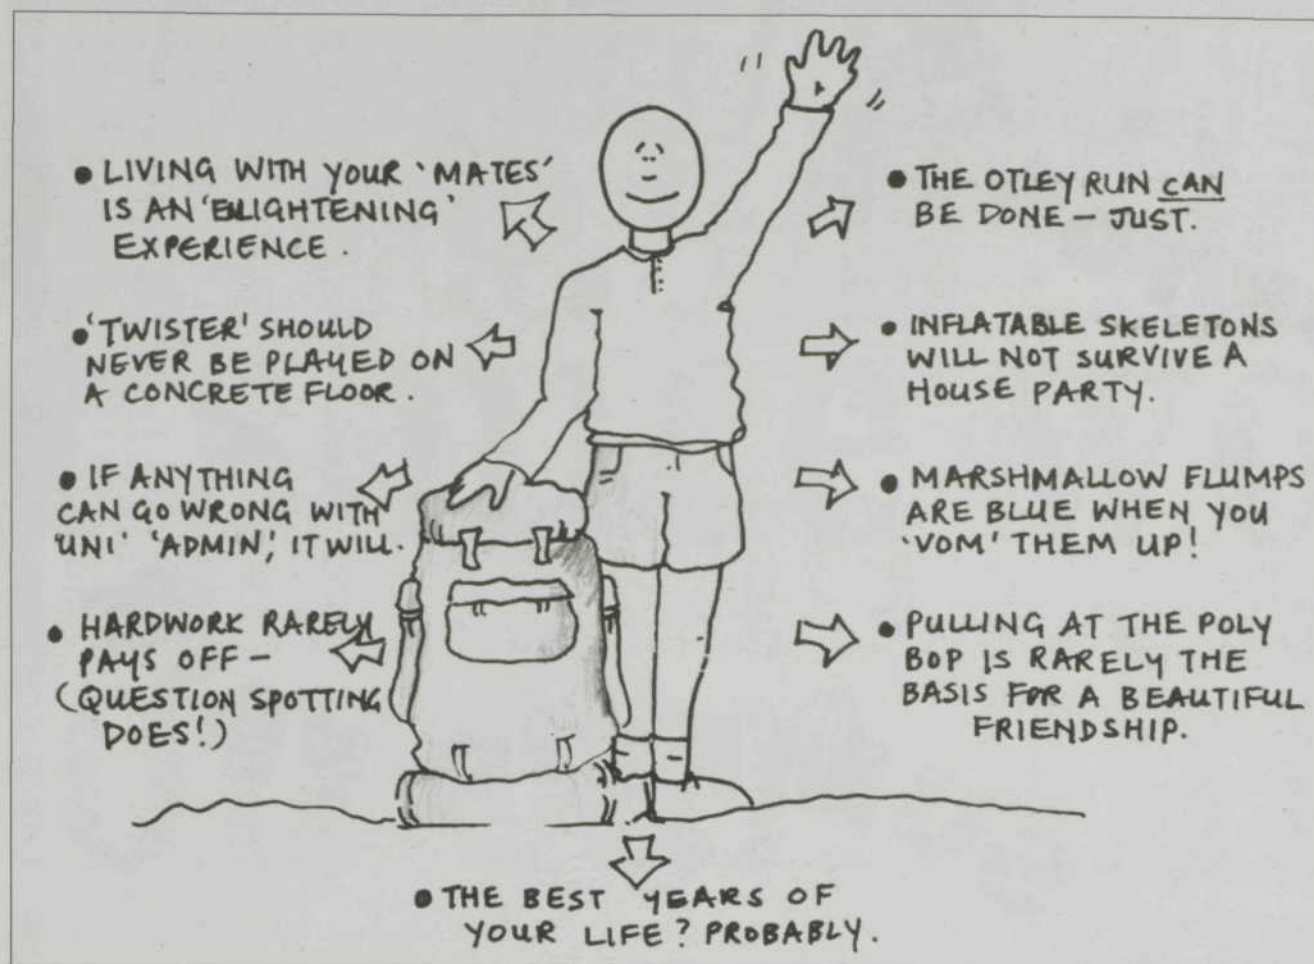 • LIVING WITH YOUR 'MATES'
IS AN 'ENLIGHTENING'
EXPERIENCE.
• 'TWISTER' SHOULD
NEVER BE PLAYED ON
A CONCRETE FLOOR.
• IF ANYTHING
CAN GO WRONG WITH
'UNI' 'ADMIN', IT WILL.
• HARDWORK RARELY
PAYS OFF –
(QUESTION SPOTTING
DOES!)
• THE OTLEY RUN CAN
BE DONE – JUST.
• INFLATABLE SKELETONS
WILL NOT SURVIVE A
HOUSE PARTY.
• MARSHMALLOW FLUMPS
ARE BLUE WHEN YOU
'VOM' THEM UP!
• PULLING AT THE POLY
BOP IS RARELY THE
BASIS FOR A BEAUTIFUL
FRIENDSHIP.
• THE BEST YEARS OF
YOUR LIFE? PROBABLY.